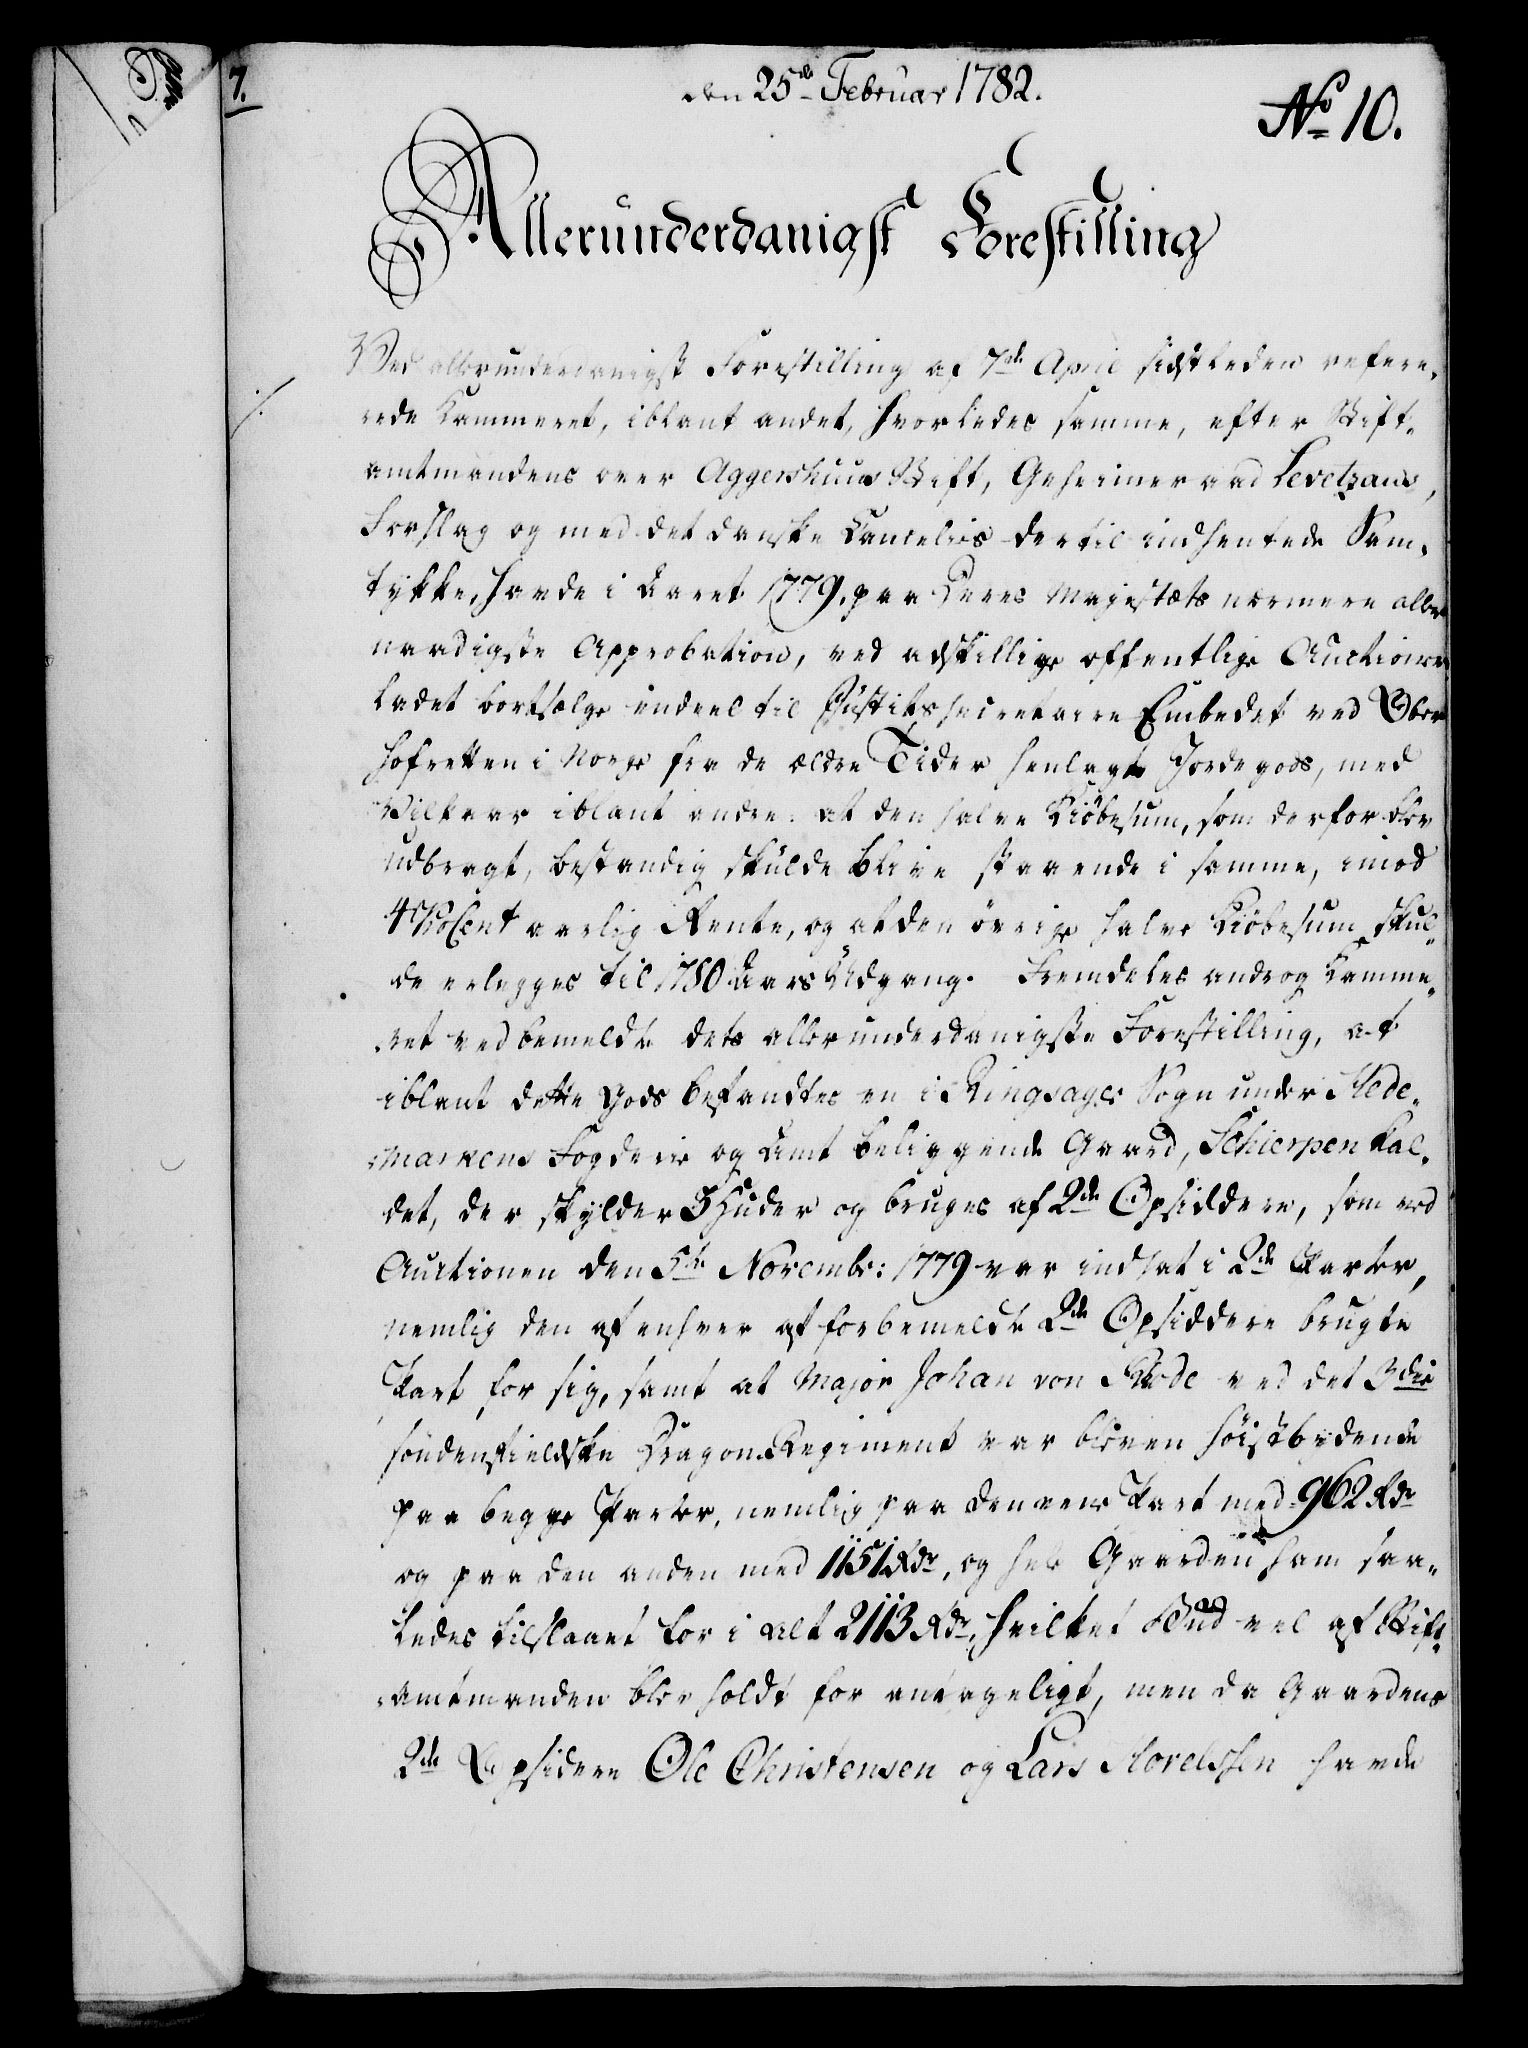 7.
den 25de Februar 1782.
No 10.
Allerunderdanigst Forestilling
Ved allerunderdanigst Forestilling af 7de April sidstleden refere-
rede Kammeret, iblant andet, hvorledes samme, efter Stift-
amtmandens over Aggershuus Stift, Geheimeraad Levetzaus,
Forslag og med det danske Cancelies dertil indhentede Sam-
tykke, havde i Aaret 1779, paa Deres Majestæts nærmere aller-
naadigste Approbation, ved adskillige offentlige Auctioner
ladet bortsælge endeel til Justitssecretaire Embedet ved Over
hofretten i Norge fra de ældre Tider henlagte Jordegods, med
Vilkaar iblant andre: at den halve Kiöbesum, som derfor blev
udbragt, bestandig skulde blive staaende i samme, imod
4 ProCent aarlig Rente, og at den övrige halve Kiöbesum skul-
de erlegges til 1780 Aars Udgang. Fremdeles androg Kamme-
ret ved bemeldte dets allerunderdanigste Forestilling, at
iblant dette Gods befandtes en i Ringsager Sogn under Hede-
markens Fogderie og Amt beliggende Gaard, Schierpen kal-
det, der skylder 3 Huder og bruges af 2de Opsiddere, som ved
Auctionen den 5te Novembr: 1779 var indsat i 2de Parter,
nemlig den af enhver af forbemeldte 2de Opsiddere brugte
Part for sig, samt at Major Johan von Rode ved det 3die
söndenfieldske Dragon-Regiment var bleven höistbydende
paa begge Parter, nemlig paa den eene Part med 962 Rdr
og paa den anden med 1151 Rdr, og hele Gaarden ham saa-
ledes tilslaaet for i alt 2113 Rdr, hvilket Bud vel af Stift-
amtmanden blev holdt for antageligt, men da Gaardens
2de Opsidere Ole Christensen og Lars Hovelssen havde